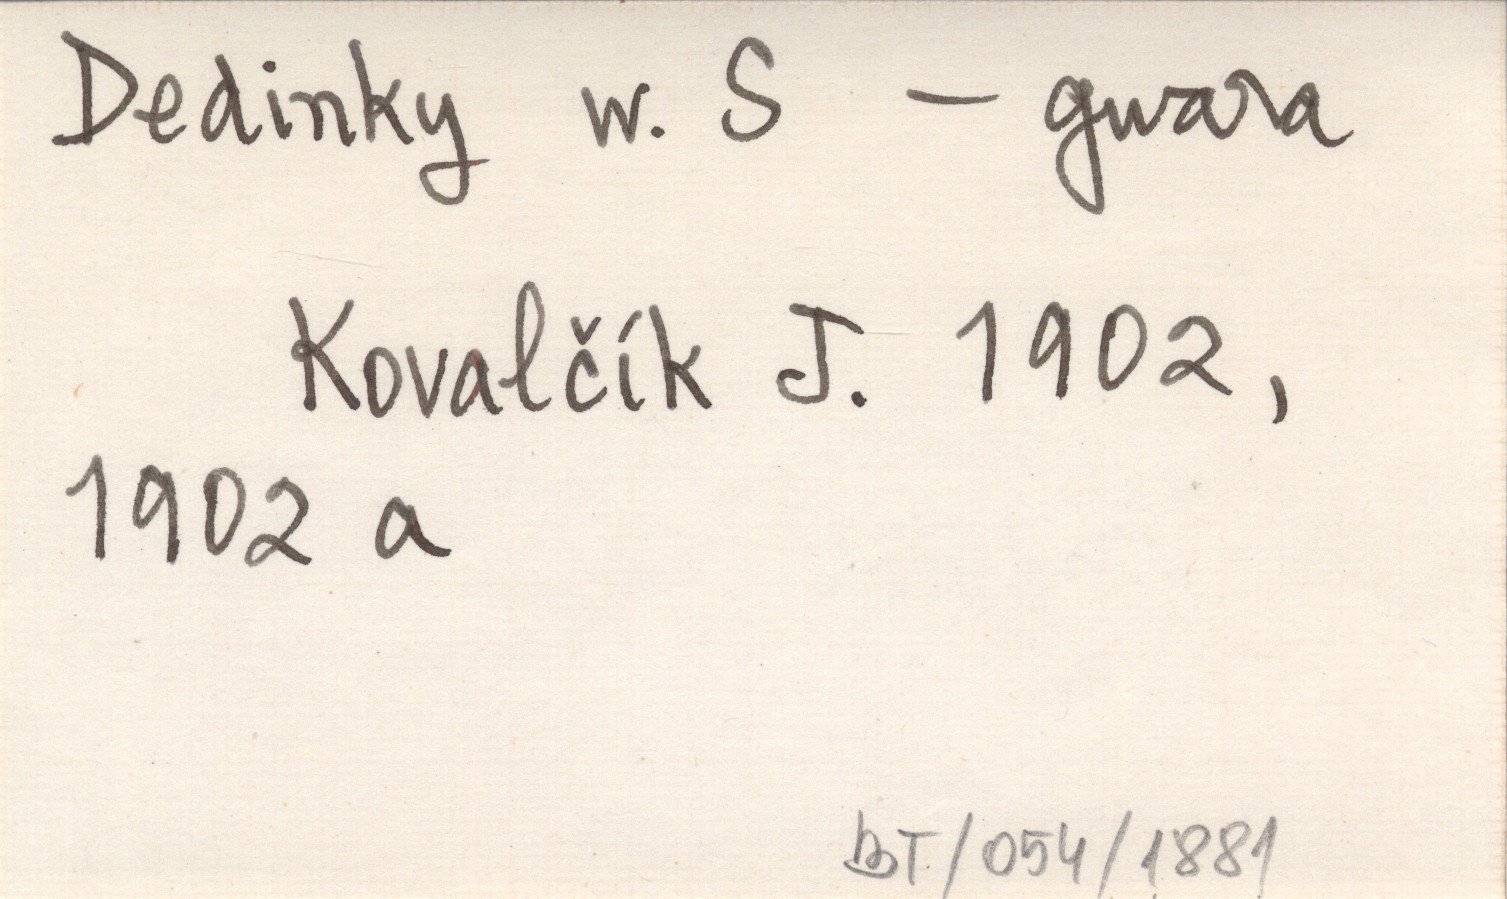 Dedinky w. S – gwara
Kovalčík J. 1902,
1902 a
BT/054/1881